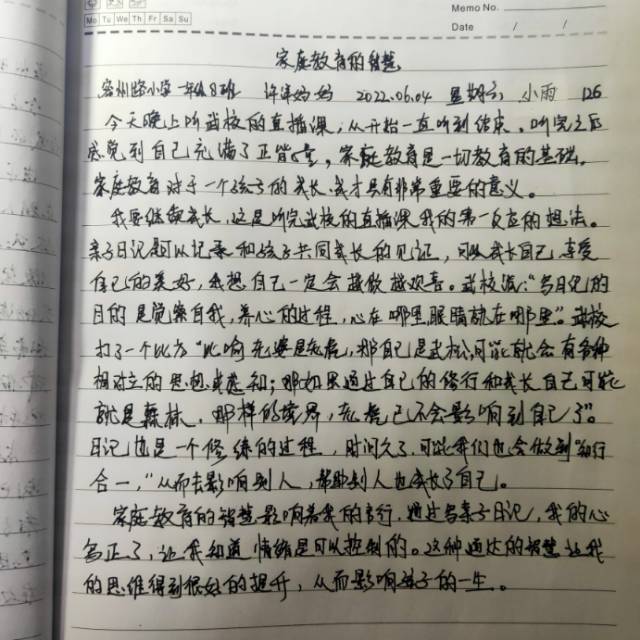 Memo No.
Mo Tu We Th Fr Sa Su
Date / /
家庭教育的智慧
路小学一年级8班 妈妈 2022.06.04 星期六 小雨 126
今天晚上听武校的直播课，从开始一直听到结束。听完之后
感觉到自己充满了正能量，家庭教育是一切教育的基础。
家庭教育对于一个孩子的成长、成才具有非常重要的意义。
我要继续成长，这是听完武校的直播课我的第一反应的想法。
亲子日记是可以记录和孩子共同成长的见证，可以成长自己，享受
自己的美好，我想自己一定会越做越欢喜。武校说：“写日记的
目的是觉察自我，养心的过程，心在哪里眼睛就在哪里”。武校
打了一个比方“比如老婆是老虎，那自己是武松，可能就会有各种
相对立的思想或感知；那如果通过自己的修行和成长自己可能
就是森林，那样的境界，老虎已不会影响到自己了”。
日记也是一个修炼的过程，时间久了，可能我们也会做到“知行
合一，”从而去影响别人，帮助别人也成长了自己。
家庭教育的智慧影响着我的言行，通过写亲子日记，我的心
正了，让我知道情绪是可以控制的。这种通达的智慧让我
的思维得到很好的提升，从而影响孩子的一生。